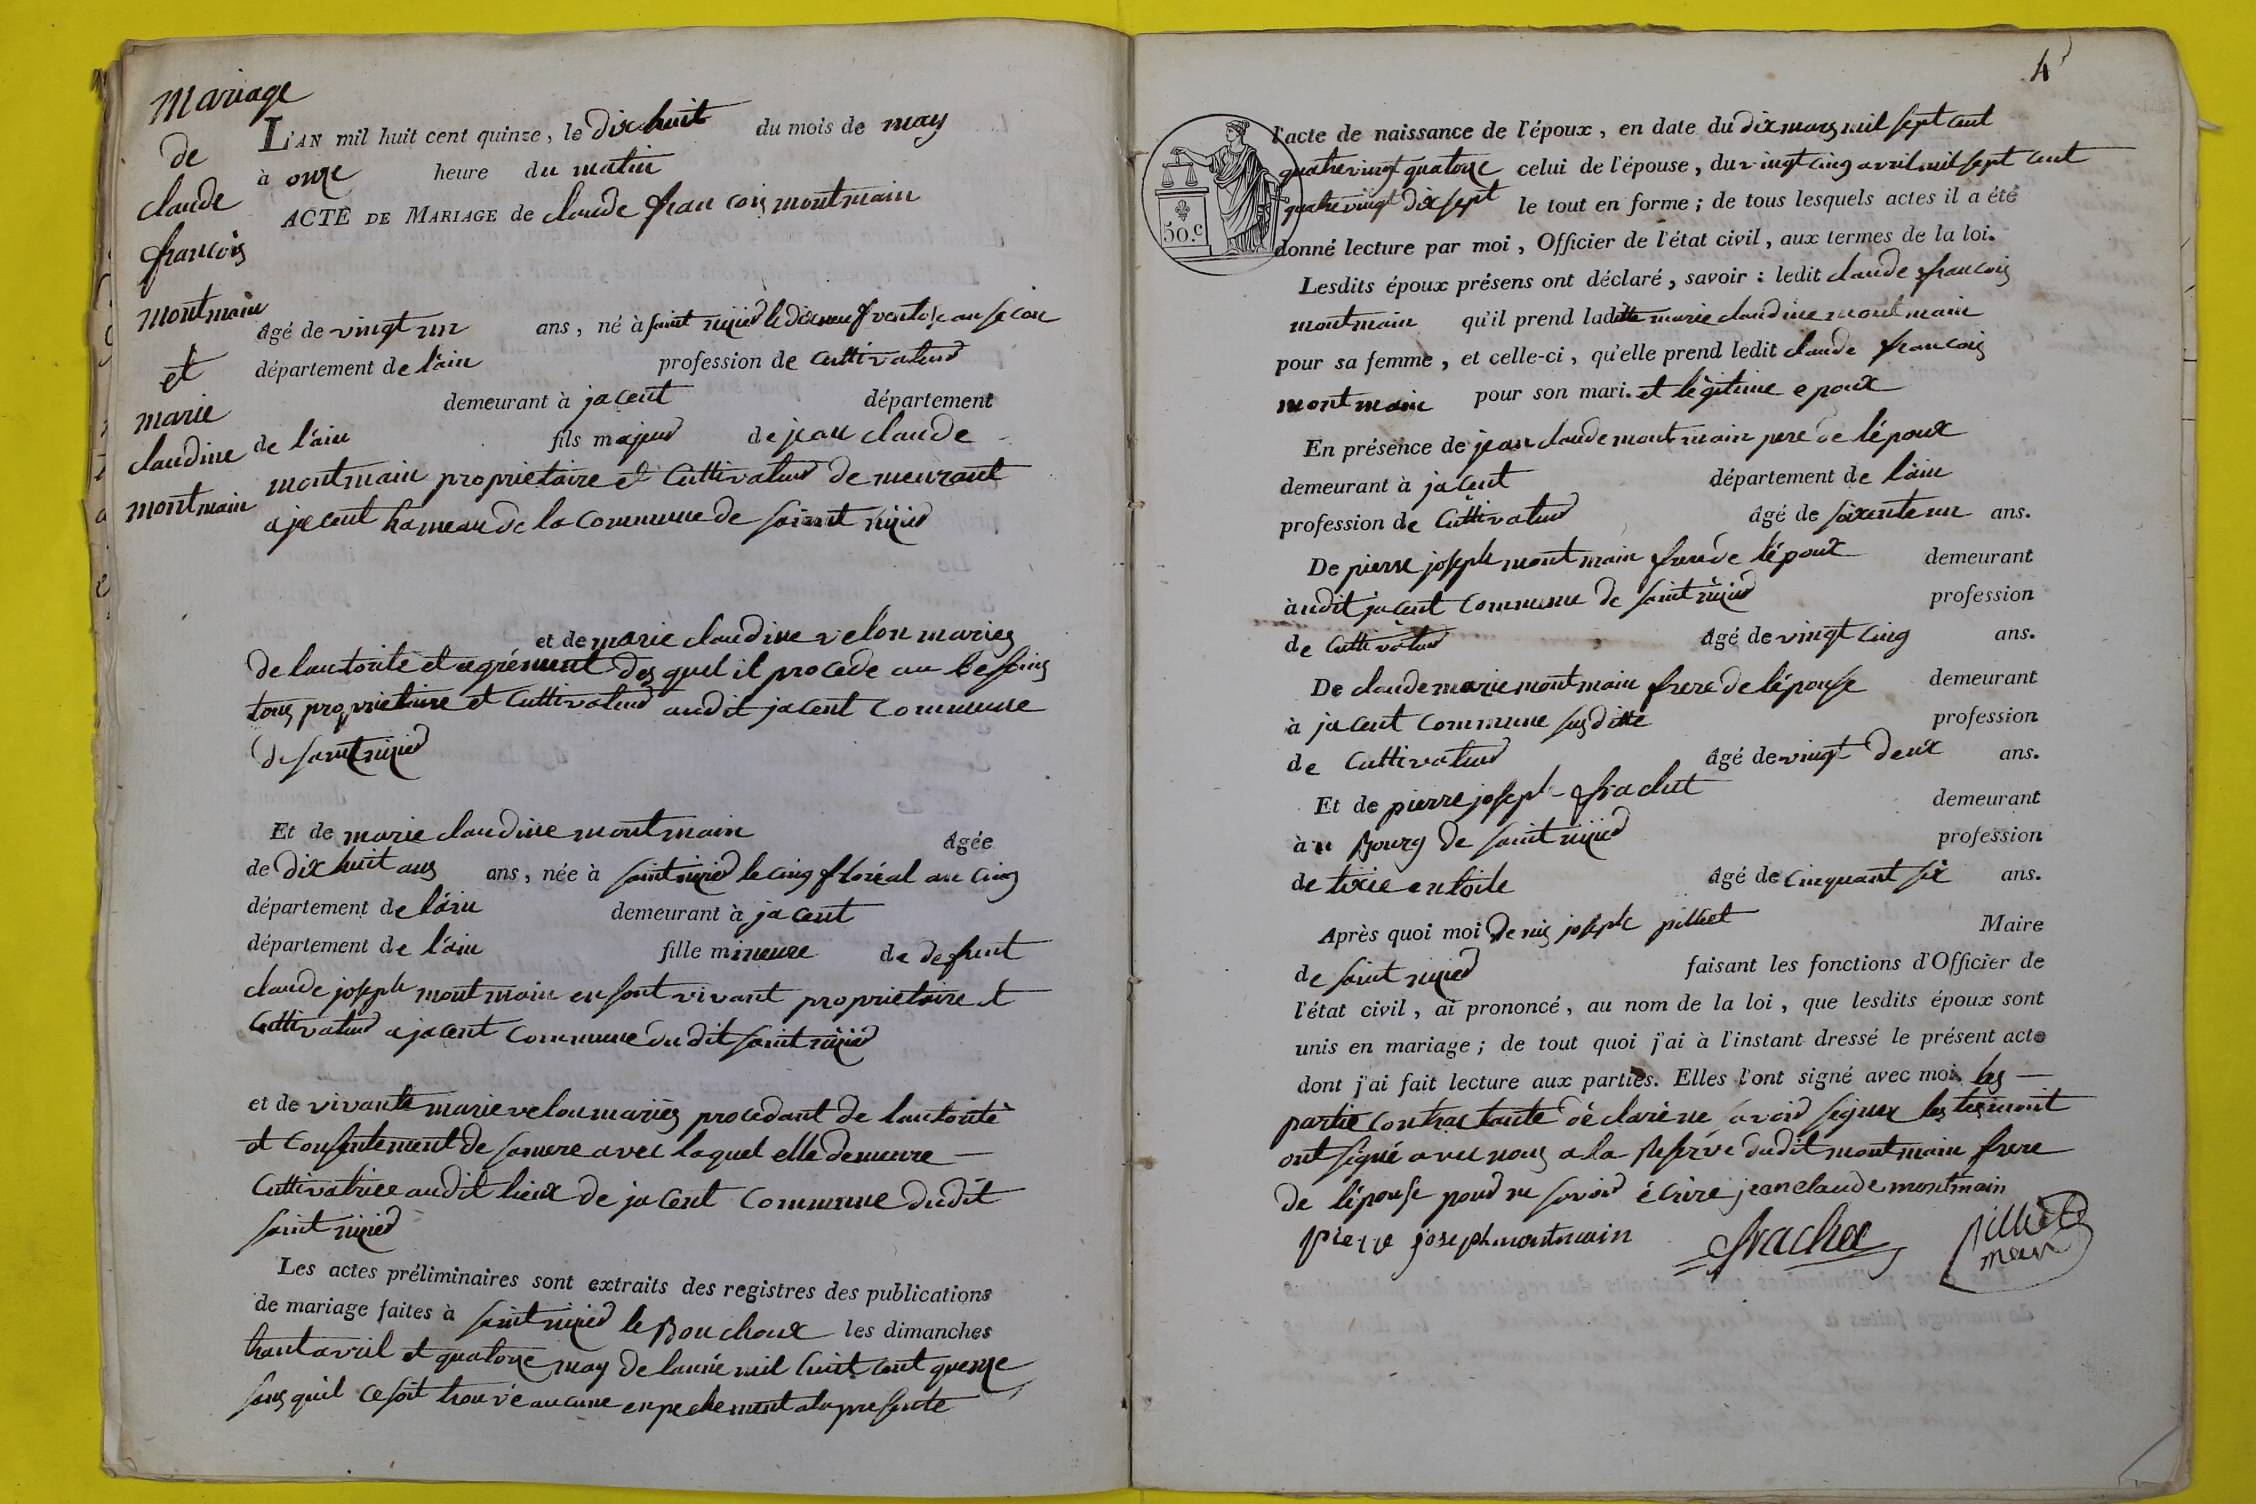 Mariage
de
claude
francois
montmain
et
marie
claudine
montmain
L'AN mil huit cent quinze, le dix huit du mois de may
à onze heure du matin
ACTE DE MARIAGE de claude francois montmain
âgé de vingt un ans, né à saint nizier le dix neuf ventose an secon
département de l'ain profession de cultivateur
demeurant à jacent département
de l'ain fils majeur de jean claude
montmain proprietaire et cultivateur demeurant
a jacent hameau de la commune de sainnt nizier
et de marie claudine velon mariez
de lautorité et agrément des quel il procede au besoins
tous proprietaire et cultivateur audit jacent commune
de saint nizier
Et de marie claudine montmain âgée
de dix huit ans ans, née à saint nizier le cinq floréal an cinq
département de l'ain demeurant à jacent
département de l'ain fille mineure de defunt
claude joseph montmain en sont vivant proprietaire et
cultivateur a jacent commune dudit saint nizier
et de vivante marie velon mariés procedant de lautorité
et consentement de samere avec laquel elle demeure
cultivatrice audit lieux de jacent commune dudit
saint nizier
Les actes préliminaires sont extraits des registres des publications
de mariage faites à saint nizier le Bouchoux les dimanches
trant avril et quatorze may de lannée mil huit cent quenze
sens quil ce soit trouvé aucune enpechement a la presente
4
50.c
l'acte de naissance de l'époux, en date du dix mars mil sept cent
quatrevingt quatorze celui de l'épouse, du vingt cinq avril mil sept cent
quatrevingt dix sept le tout en forme; de tous lesquels actes il a été
donné lecture par moi, Officier de l'état civil, aux termes de la loi.
Lesdits époux présens ont déclaré, savoir : ledit claude francois
montmain qu'il prend ladditte marie claudine montmain
pour sa femme, et celle-ci, qu'elle prend ledit claude francois
montmain pour son mari. et légitime epoux
En présence de jean claude montmain pere de lépoux
demeurant à jacent département de l'ain
profession de Cultivateur âgé de soixente un ans.
De pierre joseph montmain frere de lépoux demeurant
à udit jacent commune de saint nizier profession
de cultivateur âgé de vingt cinq ans.
De claude marie montmain frere de lépouse demeurant
à jacent commune susditte profession
de cultivateur âgé de vingt deux ans.
Et de pierre joseph frachet demeurant
à u Bourg de saint nizier profession
de tixie en toile âgé de cinquant six ans.
Après quoi moi denis joseph pilliet Maire
de saint nizier faisant les fonctions d'Officier de
l'état civil, ai prononcé, au nom de la loi, que lesdits époux sont
unis en mariage; de tout quoi j'ai à l'instant dressé le présent acte
dont j'ai fait lecture aux parties. Elles l'ont signé avec moi. les
partie contractante déclaré ne savoir signer les tesmoint
ont signé avec nous a la reserve dudit montmain frere
de lépouse pour ne savoir écrire jean claude montmain
pierre joseph montmain frachet pilliet
mair